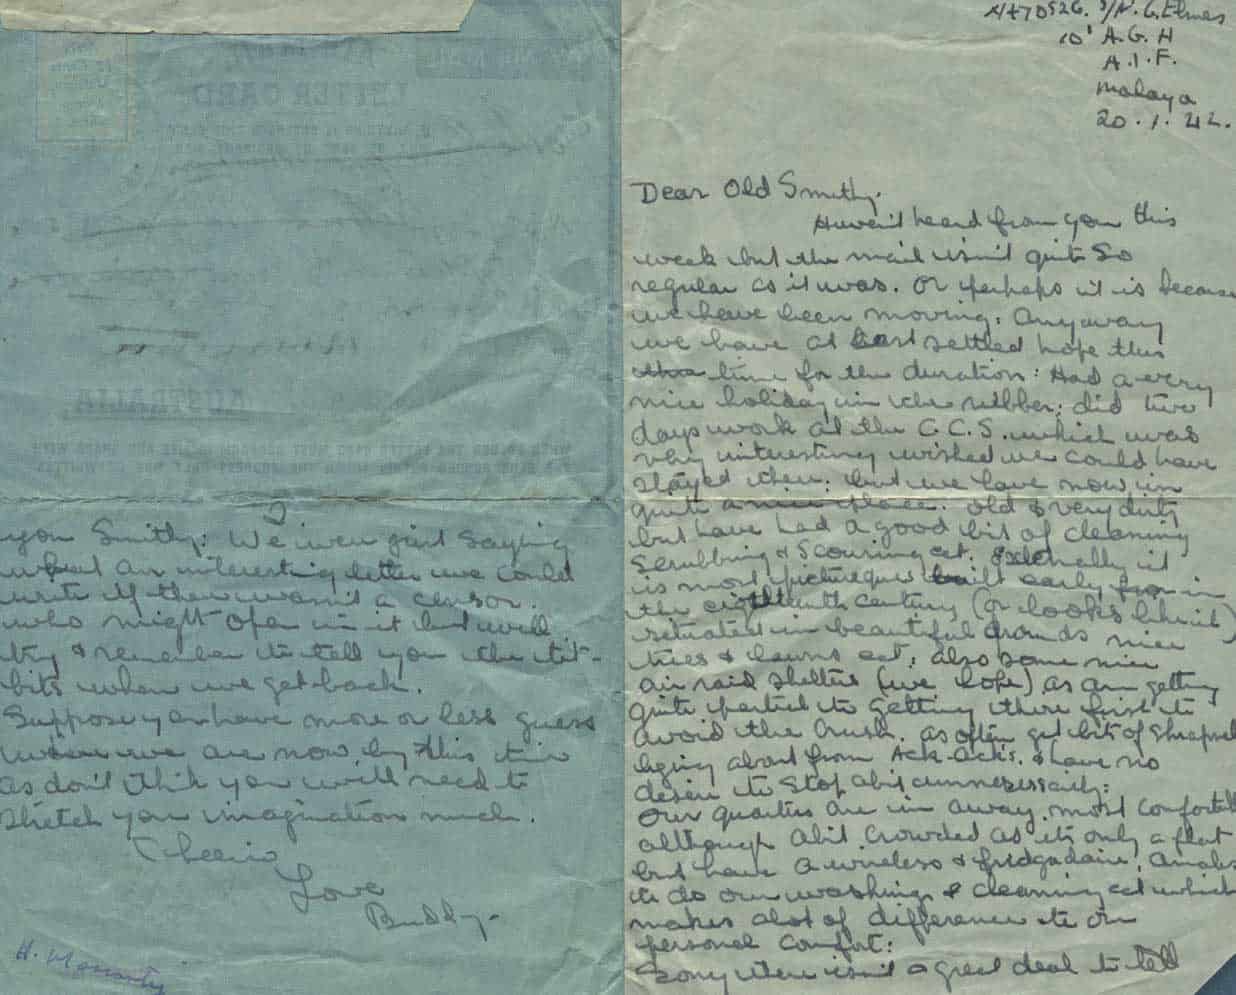 NX70526. S/N. G. Elmes
10' A.G.H
A.I.F.
Malaya
20.1.42.
Dear Old Smithy.
Haven't heard from you this
week but the mail isn't quite so
regular as it was. Or perhaps it is because
we have been moving. Anyway
we have at last settled hope this
time for the duration: Had a very
nice holiday in the rubber; did two
days work at the C.C.S. which was
very interesting wished we could have
stayed there; but we have now in
quite a nice place. old & very dirty
but have had a good bit of cleaning
Scrubbing & Scouring ect. Externally it
is most picturesque built early in
the eighteenth century (or looks like it)
situated in beautiful grounds nice
trees & lawns ect; also some nice
air raid shelters (we hope) as am getting
quite partial to getting there first to
avoid the crush. as often get bits of shrapnel
lying about from Ack-Acks. & have no
desire to stop a bit unnecessarily:
Our quarters are in a way most comfortable
although a bit crowded as its only a flat
but have a wireless & fridgadaire,
to do our washing & cleaning ect which
makes alot of difference to our
personal comfort:
Sorry there isn't a great deal to tell
you Smithy: We were just saying
what an interesting letter we could
write if there wasn't a censor.
who might open it but will
try & remember to tell you the tit-
bits when we get back.
Suppose you have more or less guess
where we are now by this time
as don't think you will need to
stretch your imagination much.
Cheerio
Love
Buddy-
H. Moriarty
LETTER CARD
AUSTRALIA